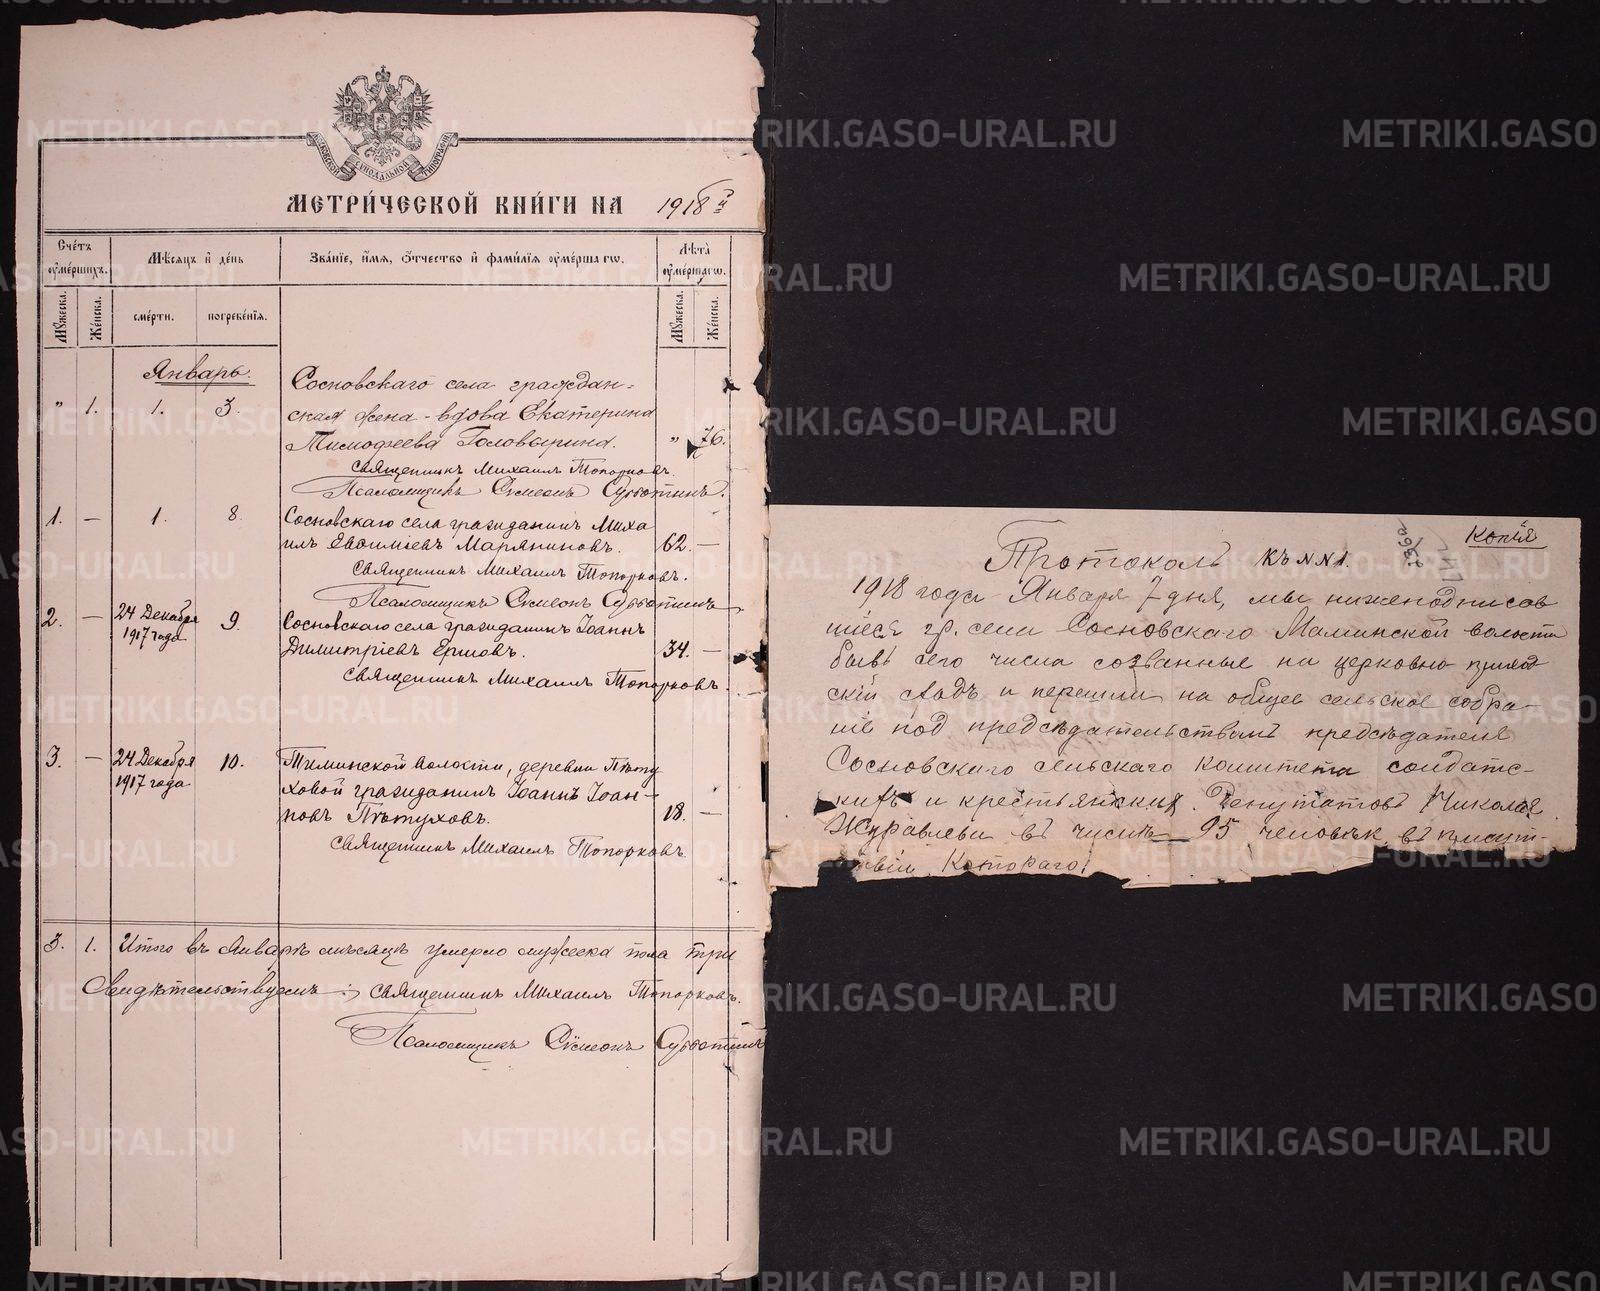 МОСКОВСКОЙ СѴНОДАЛЬНОЙ ТИПОГРАФІИ
МЕТРИ́ЧЕСКОЙ КНИ́ГИ НА 1918 г̅й̅
Сче́тъ ᲂу҆ме́ршихъ.
Мѣ́сяцъ и҆ де́нь
Зва́нїе, и҆́мѧ, ѻ҆́тчество и҆ фами́лїѧ ᲂу҆ме́ршагѡ.
Лѣ́та ᲂу҆ме́ршагѡ.
Мꙋ́жеска.
Же́нска.
сме́рти.
погребе́нїѧ.
Мꙋ́жеска.
Же́нска.
Январь.
Сосновскаго села граждан=
" 1. 1. 3. ская жена - вдова Екатерина
Тимофеева Головырина. " 76.
Священникъ Михаилъ Топорковъ.
Псаломщикъ Сѵмеонъ Субботинъ.
1. — 1. 8. Сосновскаго села гражданинъ Миха
илъ Евѳиміевъ Маряниновъ. 62. —
Священникъ Михаилъ Топорковъ.
Псаломщикъ Сѵмеонъ Субботинъ
2. — 24 Декабря 9. Сосновскаго села гражданинъ Іоаннъ
1917 года
Димитріевъ Ершовъ. 34. —
Священникъ Михаилъ Топорковъ.
3. — 24 Декабря 10. Теминской волости, деревни Пѣту
1917 года
ховой гражданинъ Іоаннъ Іоан-
новъ Пѣтуховъ. 18. —
Священникъ Михаилъ Топорковъ.
3. 1. Итого въ Январѣ мѣсяцѣ умерло мужеска пола три
Свидѣтельствуемъ: Священникъ Михаилъ Топорковъ.
Псаломщикъ Сѵмеонъ Субботинъ
Копія
Протоколъ къ № № 1.
1918 года Января 7 дня, мы нижеподписав
шіеся гр. села Сосновскаго Маминской волости
бывъ сего числа созванные на церковно приход
скій сходъ и перешли на общее сельское собра-
ніе под предсѣдательствомъ предсѣдателя
Сосновскаго сельскаго комитета солдатс-
кихъ и крестьянскихъ Депутатовъ Николая
Журавлева въ числѣ 95 человѣк въ присут-
ствіи Котораго:
METRIKI.GASO-URAL.RU